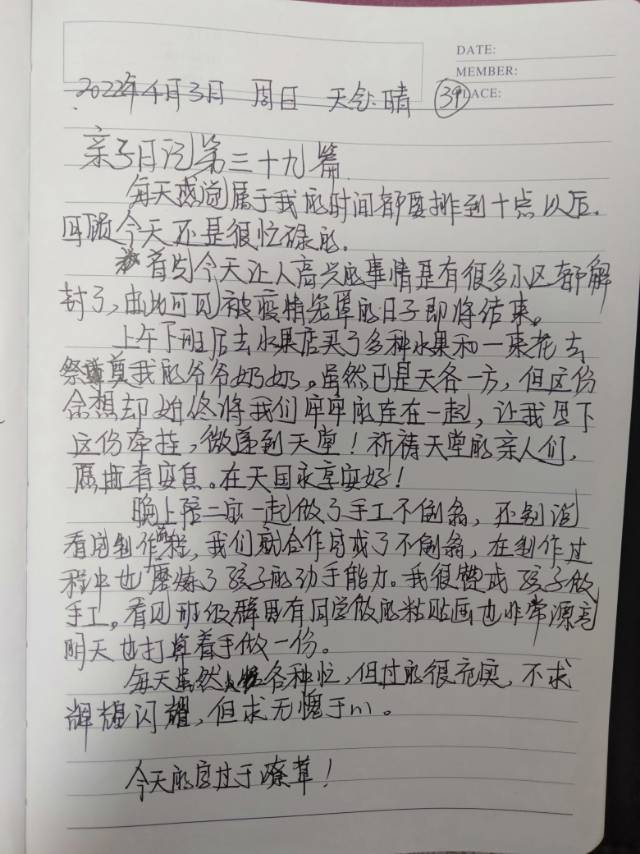 DATE:
MEMBER:
PLACE:
2022年4月3日 周日 天气:晴 39
亲子日记第三十九篇
每天感觉属于我的时间都要排到十点以后.
回顾今天还是很忙碌的.
首先今天让人高兴的事情是有很多小区都解
封了,由此可见被疫情笼罩的日子即将结束。
上午下班后去水果店买了多种水果和一束花去
祭奠我的爷爷奶奶。虽然已是天各一方,但这份
念想却始终将我们牢牢的连在一起,让我写下
这份牵挂,微传到天堂!祈祷天堂的亲人们,
在天国永享安好!
晚上陪二宝一起做了手工不倒翁,还别说
看图制作流程,我们就合作完成了不倒翁,在制作过
程中也磨炼了孩子的动手能力。我很赞成孩子做
手工。看见班级群里有同学做的粘贴画也非常漂亮
明天也打算着手做一份。
每天虽然各种忙,但过的很充实,不求
辉煌闪耀,但求无愧于心。
今天的字过于潦草!